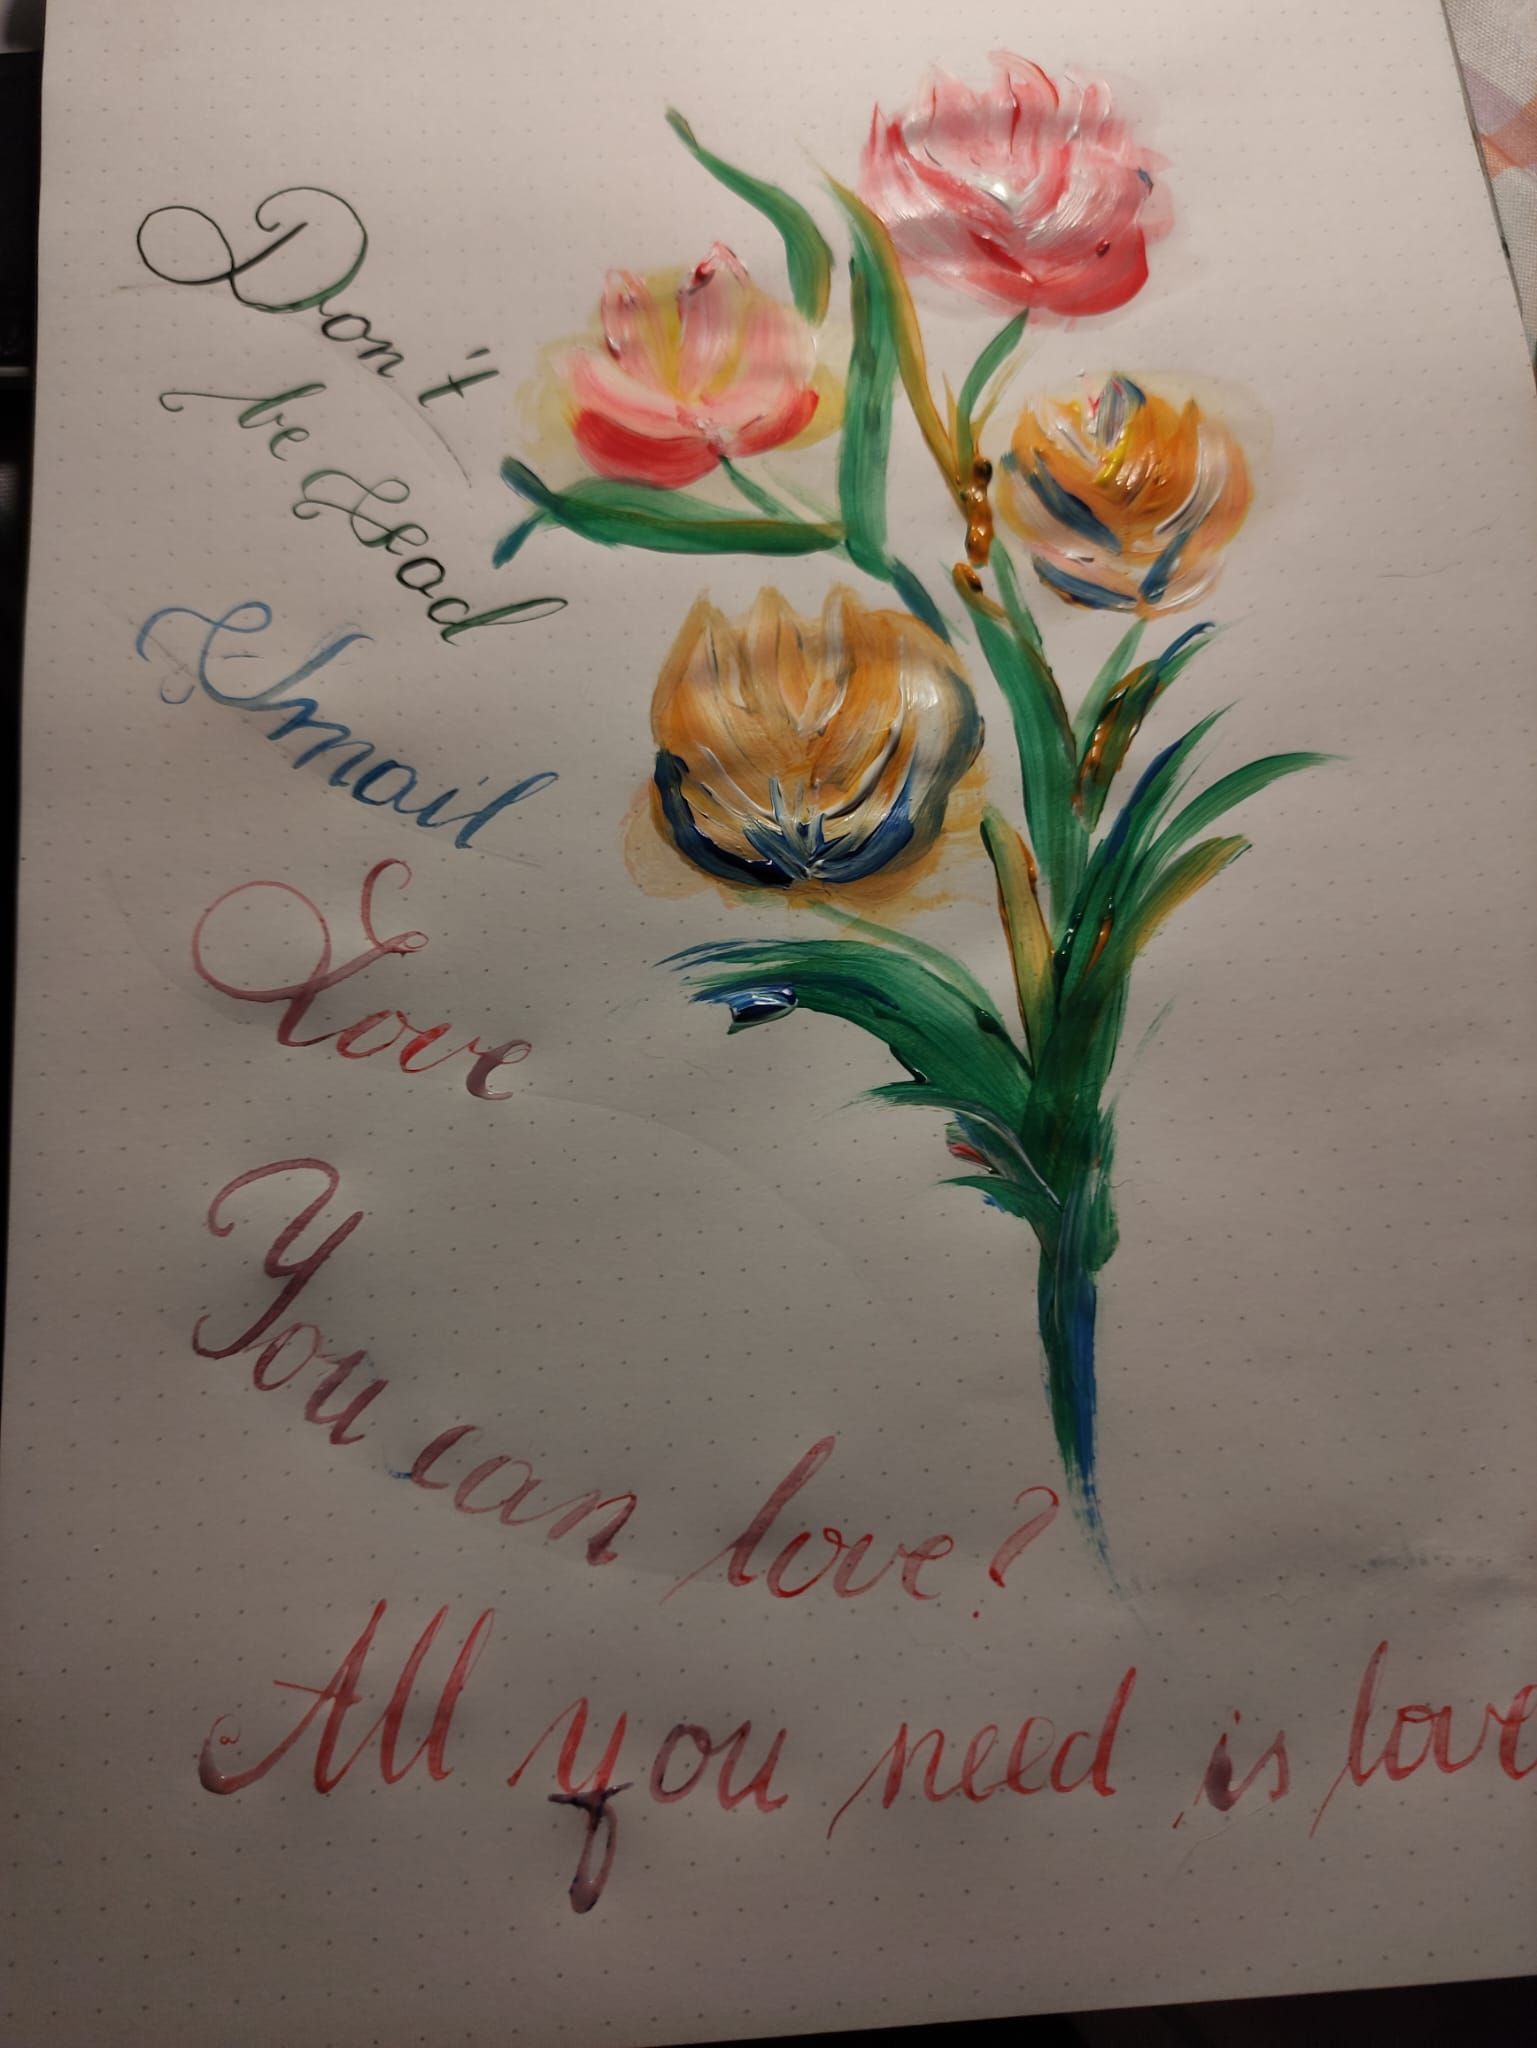 Don't
be Sead
Smail
Love
You can love?
All you need is love